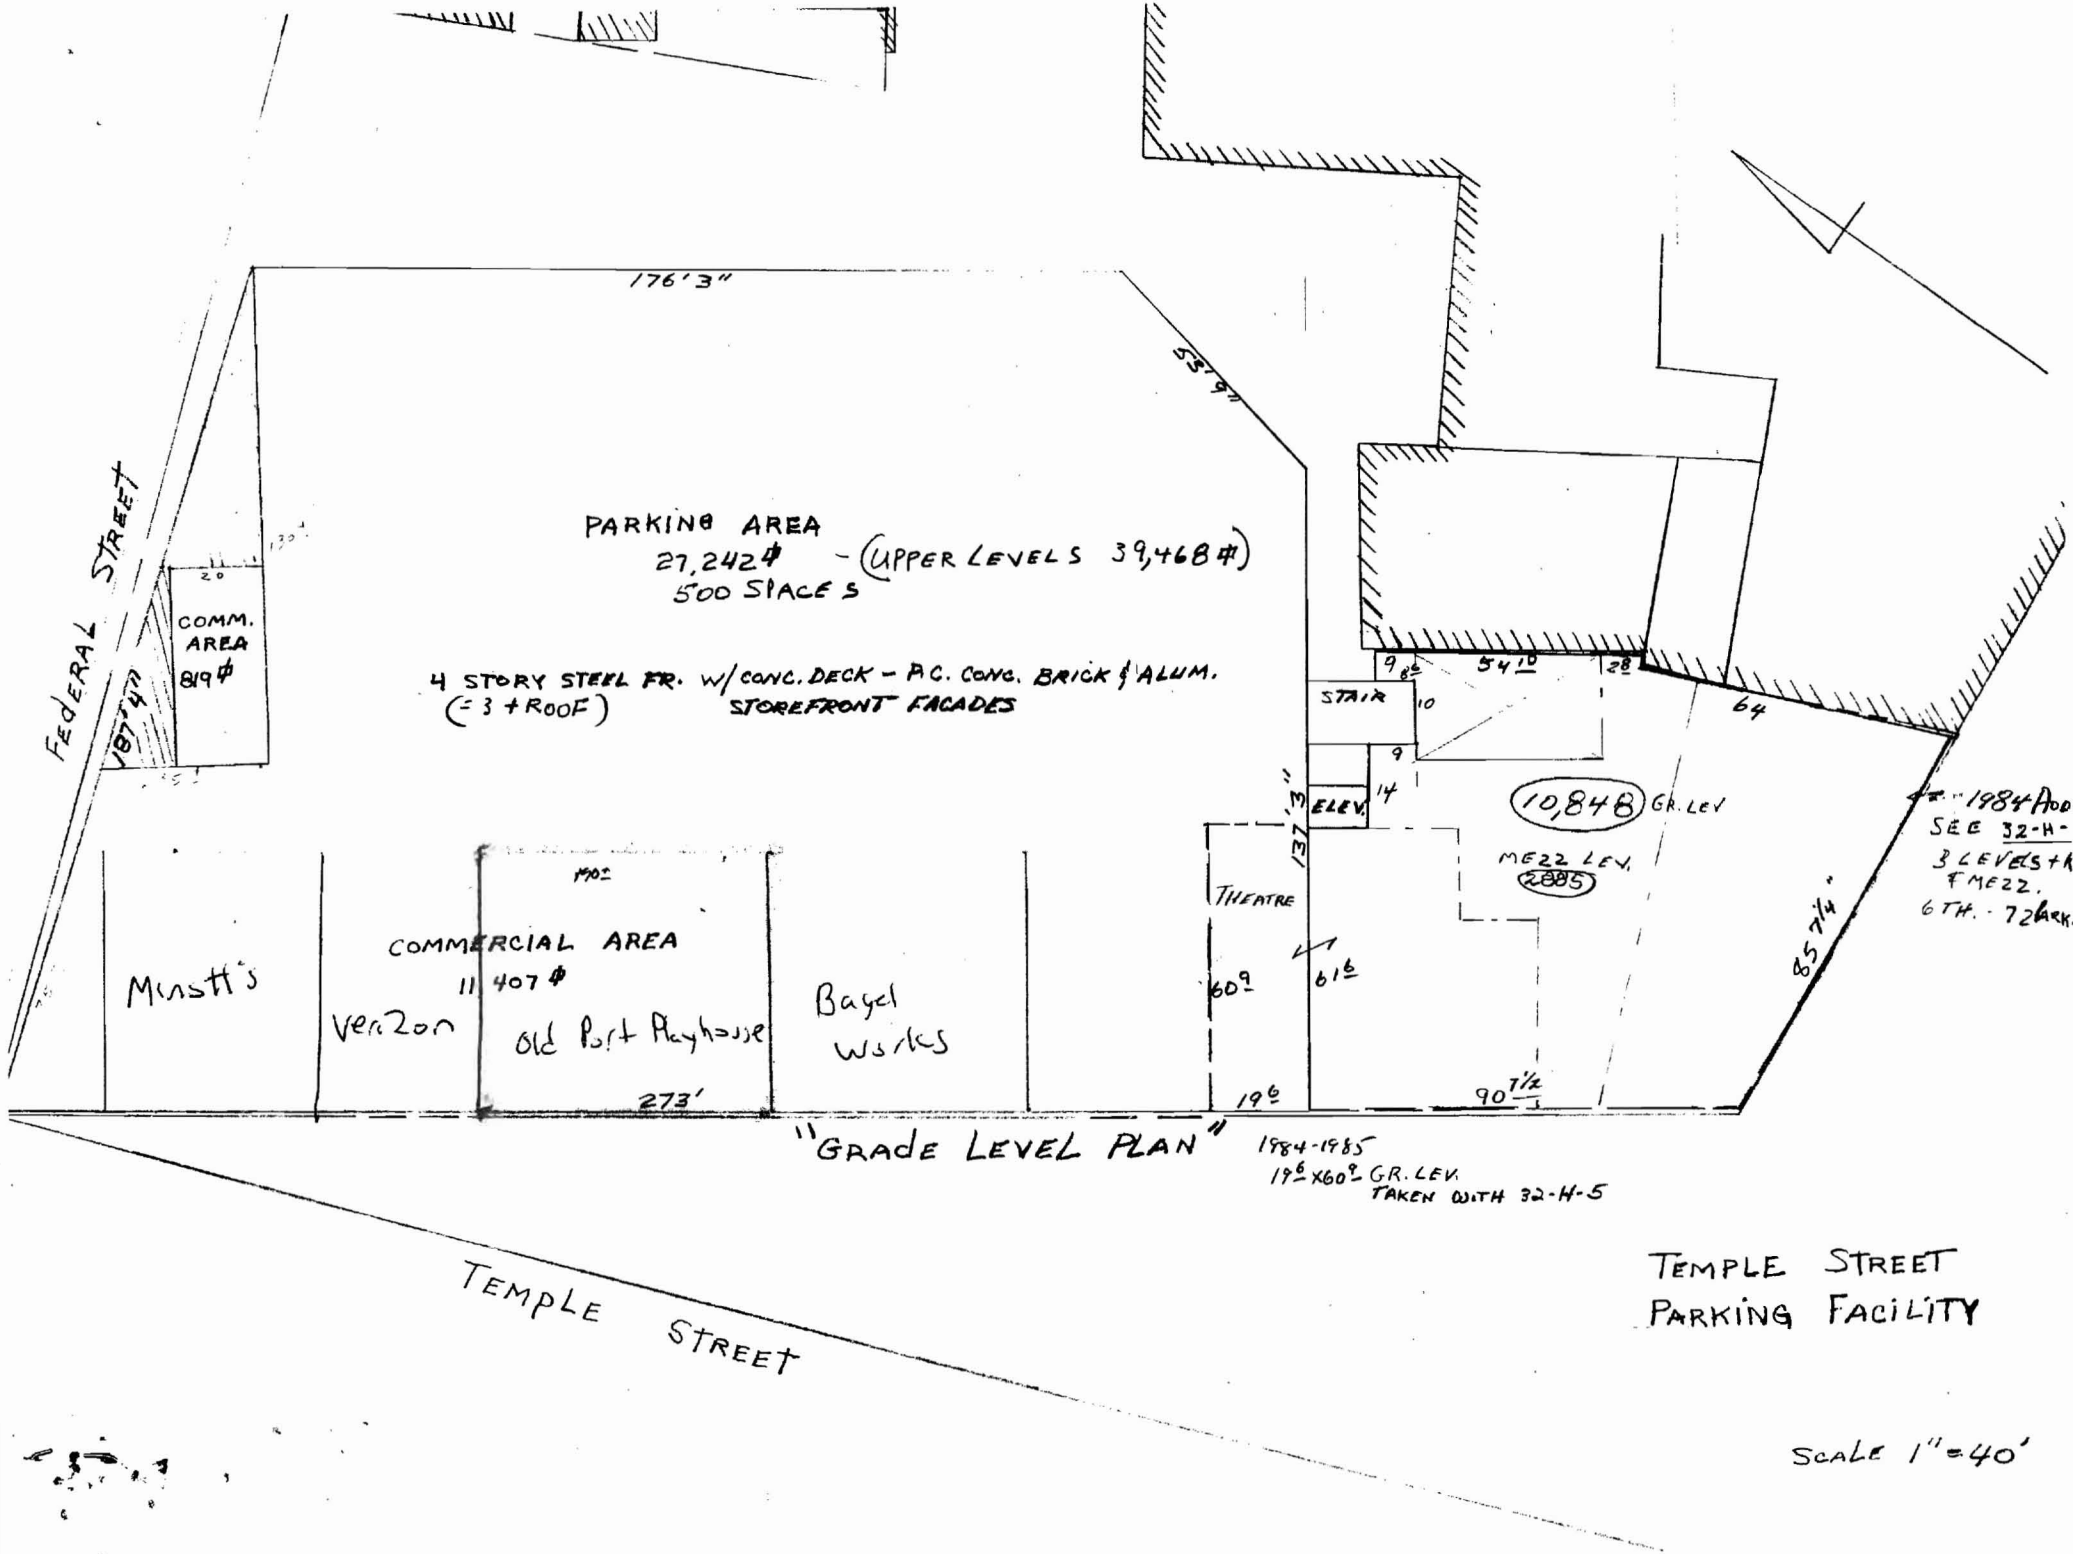 176'3"
53'9"
FEDERAL STREET
187'4"
130±
20
COMM.
AREA
819⌗
PARKING AREA
27,242⌗ - (UPPER LEVELS 39,468⌗)
500 SPACES
4 STORY STEEL FR. W/CONC. DECK - P.C. CONC. BRICK & ALUM.
(=3 + ROOF) STOREFRONT FACADES
9
8⁶
54¹⁰
2⁸
STAIR
10
64
9
14
ELEV.
137'3"
10,848 GR. LEV
MEZZ LEV.
2885
1984 ADD
SEE 32-H-
3 LEVELS +
& MEZZ.
6 TH. - 72 PARK.
85 7¼"
THEATRE
60⁹
61⁶
190±
COMMERCIAL AREA
11,407⌗
Minott's
Verizon
Old Port Playhouse
Bagel
Works
273'
19⁶
90 7½
"GRADE LEVEL PLAN"
1984-1985
19⁶ X 60⁹ GR. LEV.
TAKEN WITH 32-H-5
TEMPLE STREET
TEMPLE STREET
PARKING FACILITY
SCALE 1"=40'